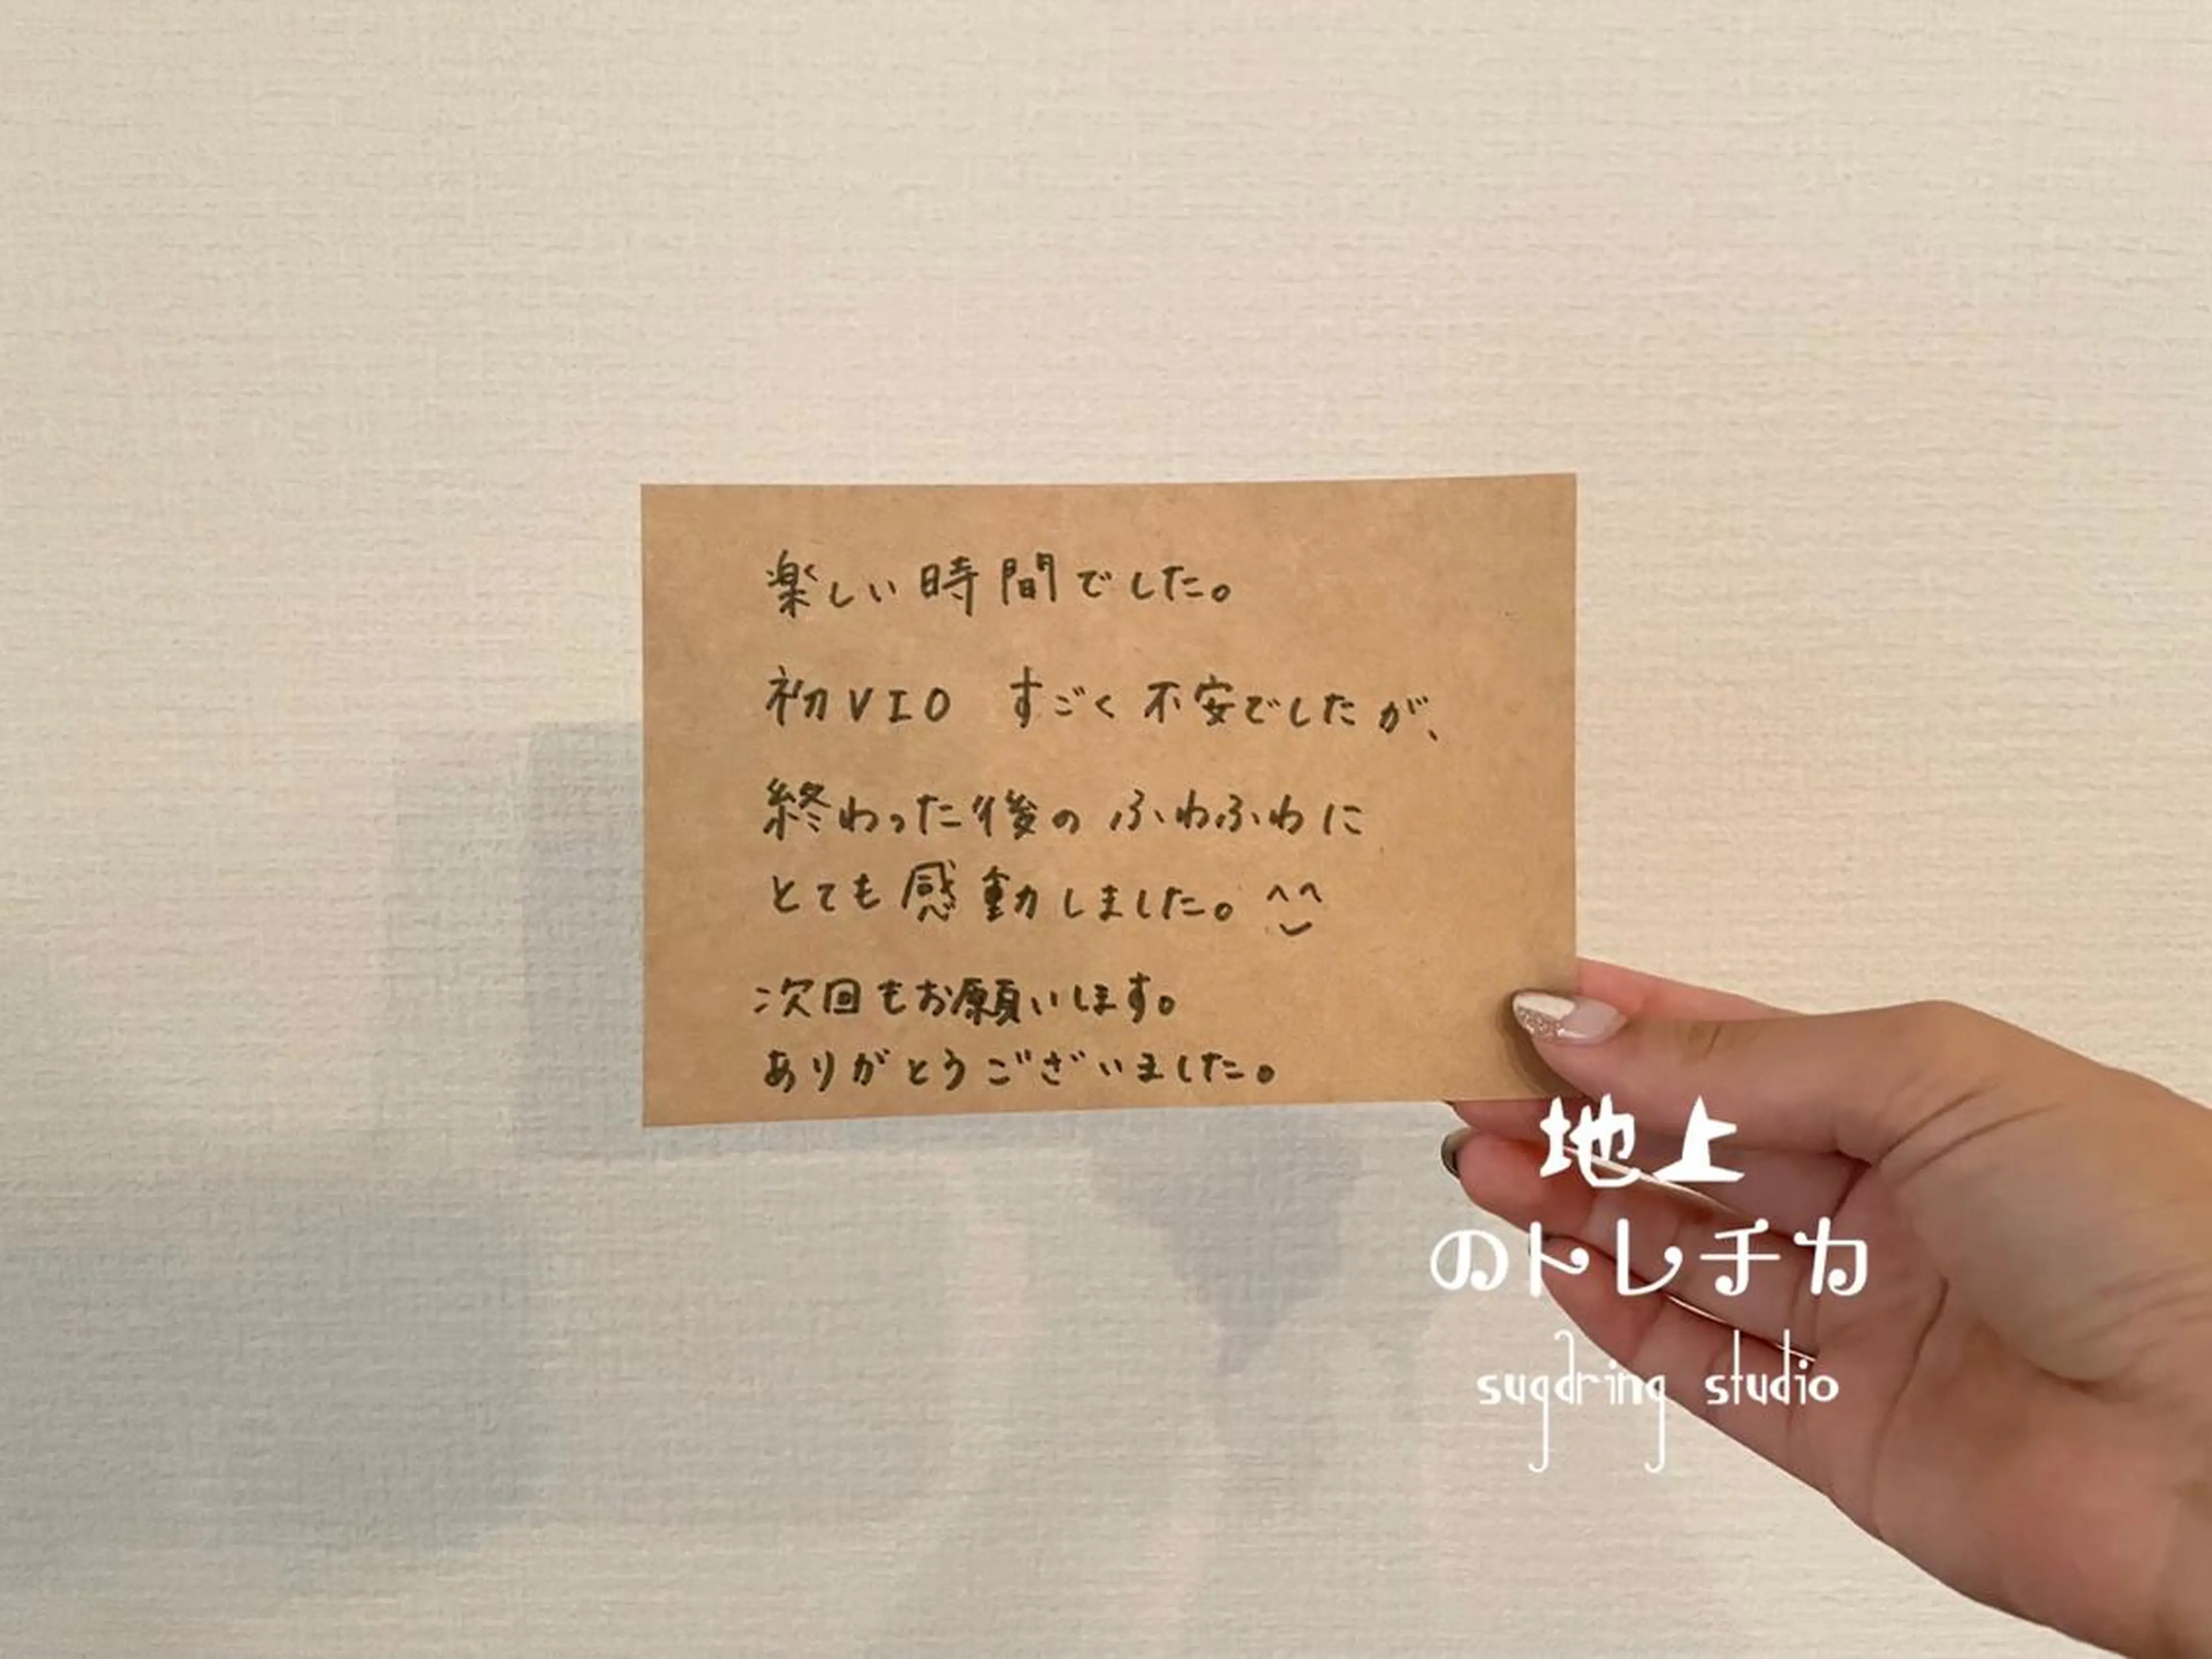 楽しい時間でした。
初VIO すごく不安でしたが、
終わった後のふわふわに
とても感動しました。^^
次回もお願いします。
ありがとうございました。
地上
のトレチカ
sugaring studio